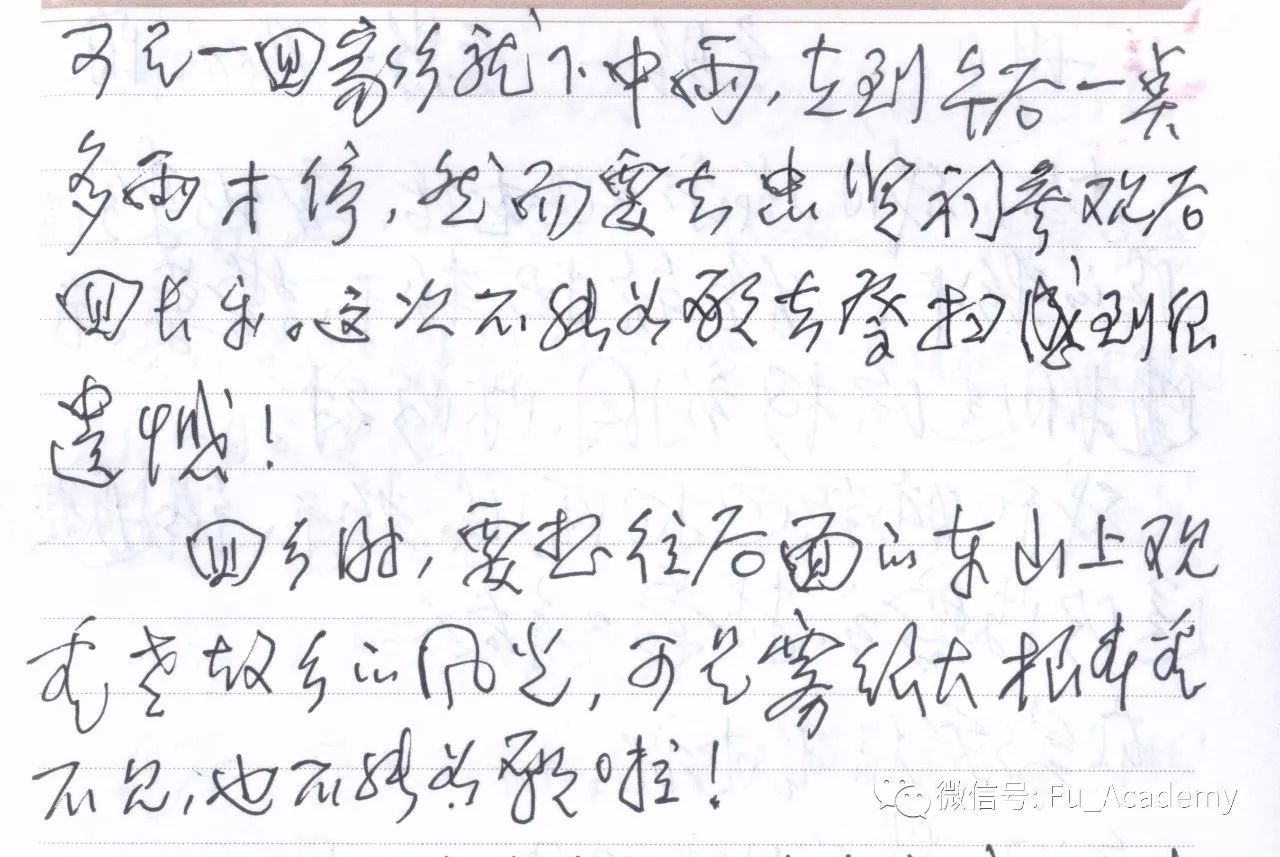 可是一回家乡就下中雨，直到午后一点
多雨才停，然而要去忠贤祠参观后
回长乐。这次不能如愿去祭扫感到很
遗憾！
回乡时，要想往后面的东山上观
看老故乡的风光，可是雾很大根本看
不见，也不能如愿啦！
微信号: Fu_Academy